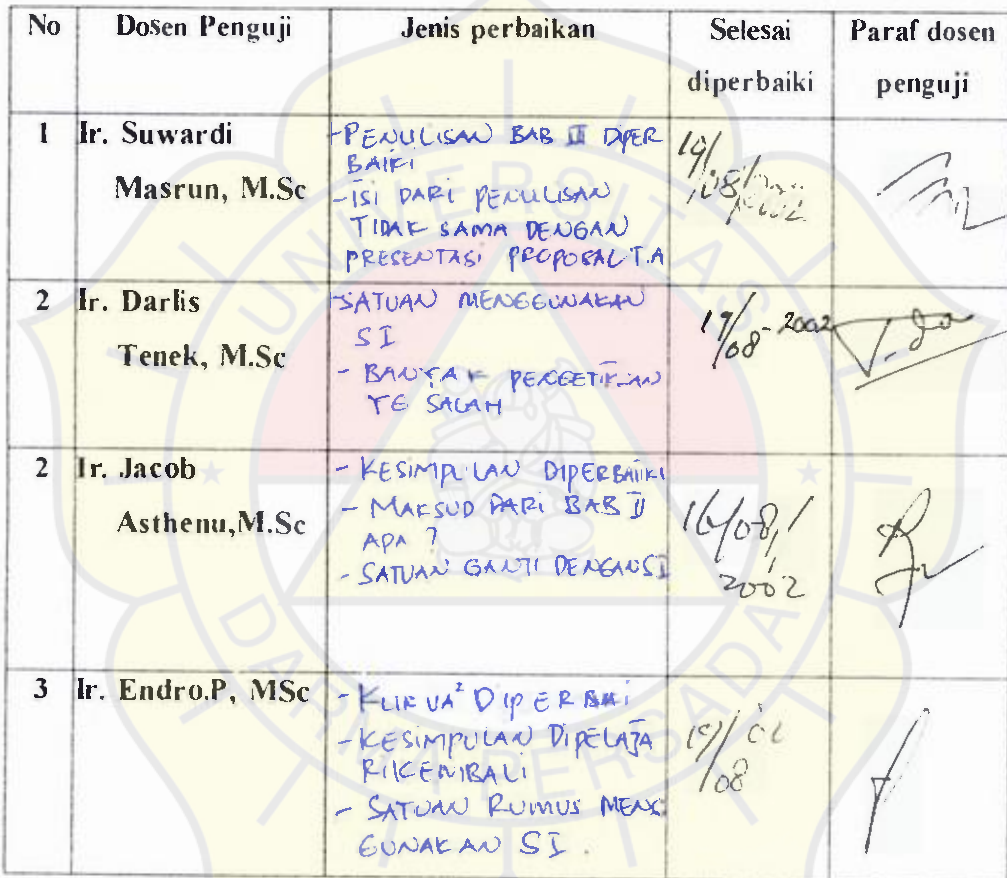 No Dosen Penguji Jenis perbaikan Selesai diperbaiki Paraf dosen penguji
1 Ir. Suwardi Masrun, M.Sc
- PENULISAN BAB III DIPER
BAIKI
- ISI DARI PENULISAN
TIDAK SAMA DENGAN
PRESENTASI PROPOSAL T.A
19/08/2002
2 Ir. Darlis Tenek, M.Sc
- SATUAN MENGGUNAKAN
SI
- BANYAK PENGETIKAN
YG SALAH
19/08-2002
2 Ir. Jacob Asthenu,M.Sc
- KESIMPULAN DIPERBAIKI
- MAKSUD DARI BAB II
APA ?
- SATUAN GANTI DENGAN SI
16/08/
2002
3 Ir. Endro.P, MSc
- KURVA² DIPERBAI
- KESIMPULAN DIPELAJA
RI KEMBALI
- SATUAN RUMUS MENG
GUNAKAN SI.
19/08
UNIVERSITAS
DARMA PERSADA